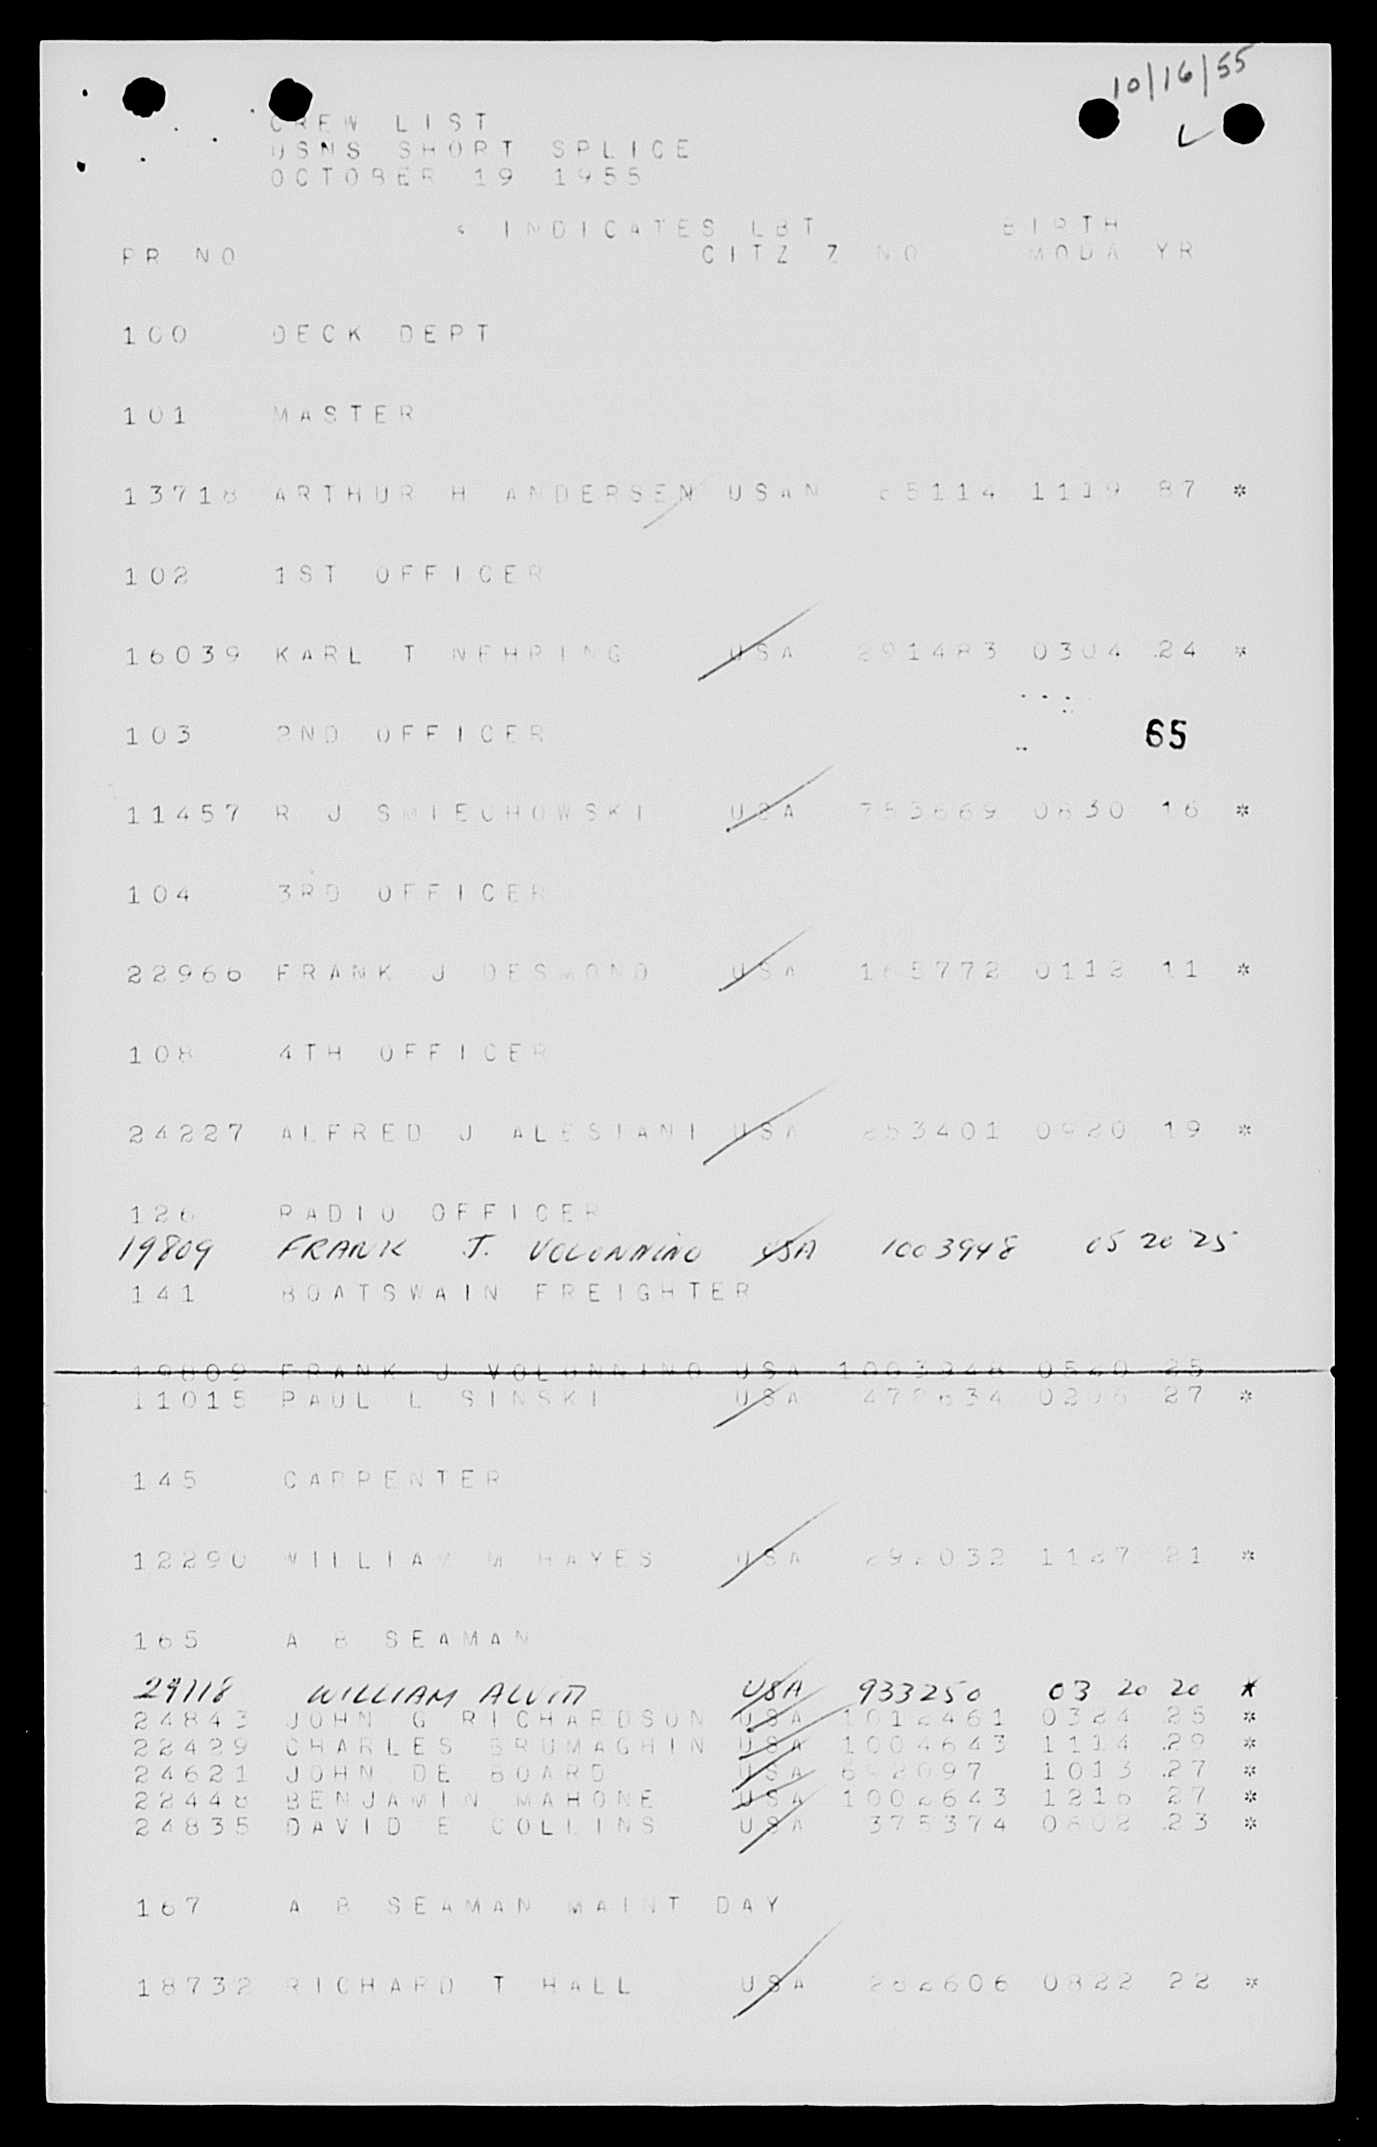 10/16/55
CREW LIST
USNS SHORT SPLICE
OCTOBER 19 1955
* INDICATES LBT BIRTH
PR NO CITZ Z NO MODA YR
100 DECK DEPT
101 MASTER
13718 ARTHUR H ANDERSEN USAN 1119 87 *
102 1ST OFFICER
16039 KARL T NEHRING USA 291483 0304 24 *
103 2ND OFFICER 65
11457 R J SMIECHOWSKI USA 753669 0830 16 *
104 3RD OFFICER
22966 FRANK J DESMOND USA 165772 0112 11 *
108 4TH OFFICER
24227 ALFRED J ALESIANI USA 0920 19 *
126 RADIO OFFICER
19809 FRANK J. VOLONNINO USA 1003948 05 20 25
141 BOATSWAIN FREIGHTER
19809 FRANK J VOLONNINO USA 1003948 0520 25
11015 PAUL L SINSKI USA 0206 27 *
145 CARPENTER
12290 WILLIAM M HAYES USA 1127 21 *
165 A B SEAMAN
29118 WILLIAM USA 933250 03 20 20 *
24843 JOHN G RICHARDSON USA 1012461 0324 25 *
22429 CHARLES BRUMAGHIN USA 1004643 1114 29 *
24621 JOHN DE BOARD USA 692097 1013 27 *
22448 BENJAMIN MAHONE USA 1002643 1216 27 *
24835 DAVID E COLLINS USA 375374 0802 23 *
167 A B SEAMAN MAINT DAY
18732 RICHARD T HALL USA 262606 0822 22 *